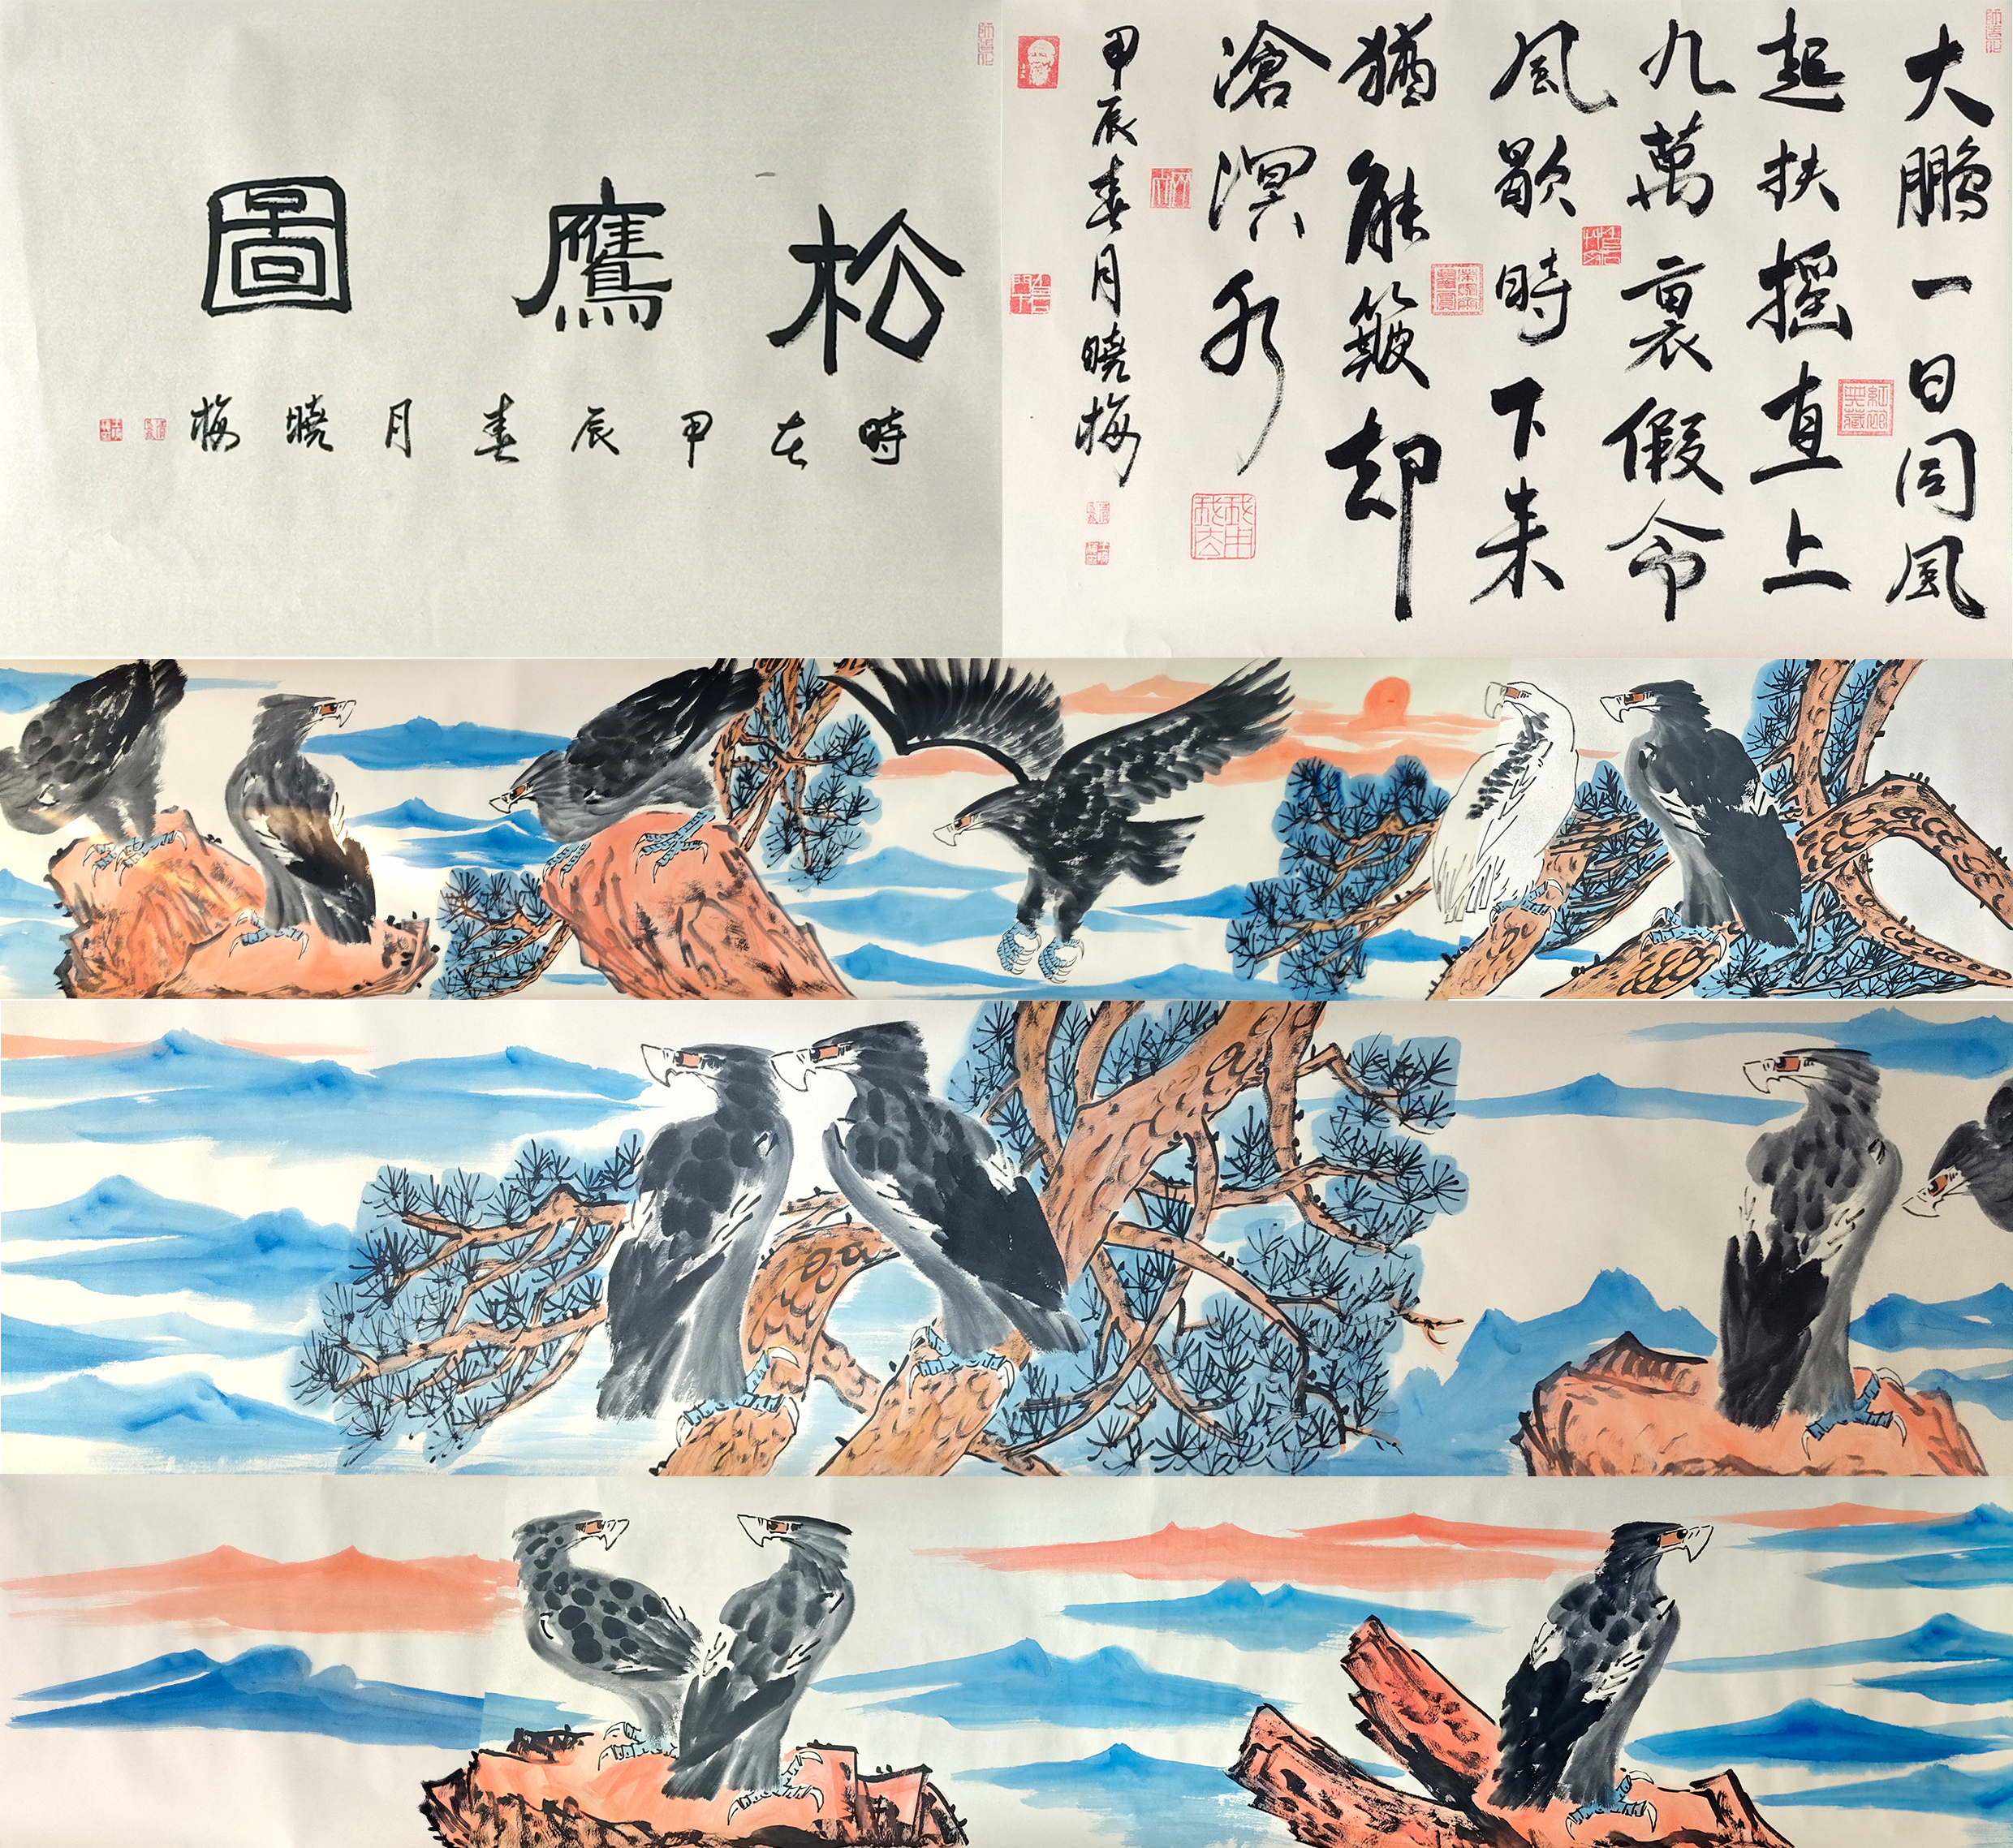 松鷹圖
時在甲辰春月曉梅
大鵬一日同風
起扶摇直上
九萬裏假令
風歇時下来
猶能簸却
滄溟水
甲辰春月曉梅